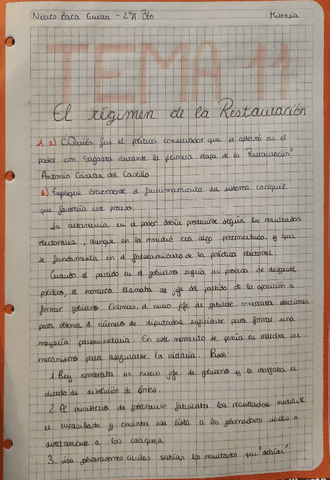 Nieves Baca Guerra - 2ºA Bto Historia
TEMA 11
El régimen de la Restauración
1. a) ¿Quién fue el político conservador que se alternó en el
poder con Sagasta durante la primera etapa de la Restauración?
Antonio Cánovas del Castillo
b) Explique brevemente el funcionamiento del sistema caciquil
que favorecía ese proceso.
La alternancia en el poder debía producirse según los resultados
electorales, aunque en la realidad era algo preconcebido, ya que
se fundamenta en el falseamiento de la práctica electoral.
Cuando el partido en el gobierno sufría un proceso de desgaste
político, el monarca llamaba al jefe del partido de la oposición a
formar gobierno. Entonces, el nuevo jefe de gabinete convocaba elecciones
para obtener el número de diputados suficiente para formar una
mayoría parlamentaria. En este momento se ponía en marcha un
mecanismo para asegurarse la victoria. Pasos:
1. Rey nombraba un nuevo jefe de gobierno y le otorgaba el
decreto de disolución de Cortes.
2. El ministerio de gobernación fabricaba los resultados mediante
el encasillado y enviaba una lista a los gobernadores civiles o
directamente a los caciques.
3. Los gobernadores civiles sabían los resultados que "debían"